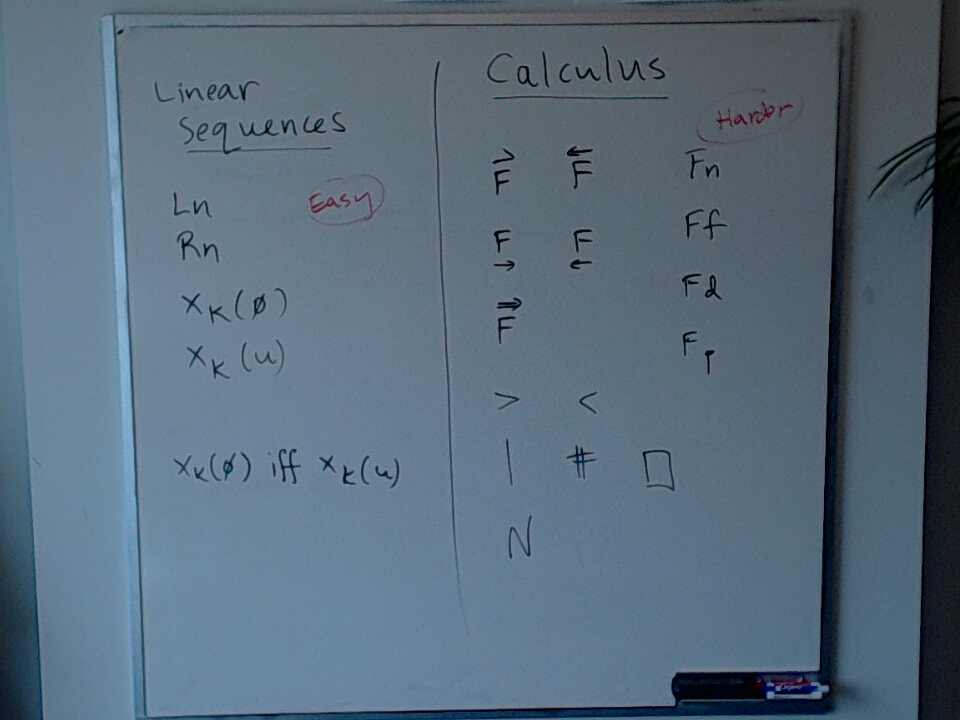 Linear
Sequences
Easy
Ln
Rn
x_K(ø)
x_K(u)
x_K(ø) iff x_K(u)
Calculus
Harder
F⃗ F⃖ Fn
F→ F← Ff
F⇒ Fd
Fp
> <
| # □
N